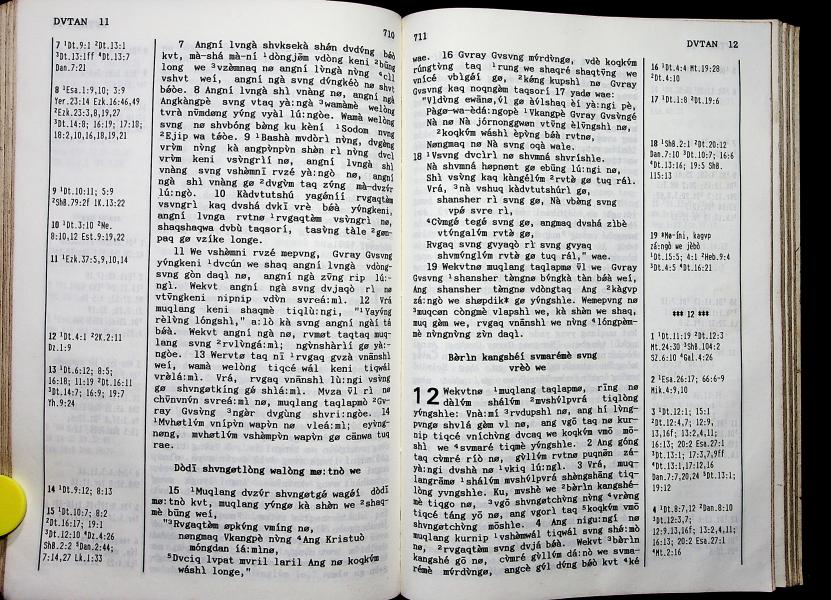 DVTAN 11
710
7 ¹Dt.9:1 ²Dt.13:1
³Dt.13:1ff ⁴Dt.13:7
Dan.7:21
8 ¹Esa.1:9,10; 3:9
Yer.23:14 Ezk.16:46,49
²Ezk.23:3,8,19,27
³Dt.14:8; 16:19; 17:18;
18:2,10,16,18,19,21
9 ¹Dt.10:11; 5:9
²ShB.79:2f 1K.13:22
10 ¹Dt.3:10 ²Ne.
8:10,12 Est.9:19,22
11 ¹Ezk.37:5,9,10,14
12 ¹Dt.4:1 ²2K.2:11
Dz.1:9
13 ¹Dt.6:12; 8:5;
16:18; 11:19 ²Dt.16:11
³Dt.14:7; 16:9; 19:7
Yh.9:24
14 ¹Dt.9:12; 8:13
15 ¹Dt.10:7; 8:2
²Dt.16:17; 19:1
³Dt.12:10 ⁴Dz.4:26
ShB.2:2 ⁵Dan.2:44;
7:14,27 Lk.1:33
7 Angní lvngà shvksekà shán dvdv́ng bǿò
kvt, mà-shá mà-ní ¹dòngjø̀m vdòng keni ²bǜng
long we ³vzèmnaq nø angní lvngà nv̀ng ⁴cll
vshvt weí, angní ngà svng dv́ngkéò nø shvt
bǿòe. 8 Angní lvngà shl vnàng nø, angní ngà
Angkàngpè svng vtaq yà:ngà ³wamàmè welòng
tvrà nv̄mdø̀m yv́ng vyàl lú:ngòe. Wamà welòng
svng nø shvbóng bèng ku kèní ¹Sodom nvng
²Ejip wa tǿòe. 9 ¹Bashà mvdòrì nv̀ng, dvgèng
vrv̀m nv̀ng kà angpv̀npv̀n shǝ̀n rì nv̀ng dvcl
vrv̀m keni vsv̀ngrìí nø, angní lvngà shl
vnàng svng vshèmní rvzé yà:ngò nø, angní
ngà shl vnàng gø ²dvgv̀m taq zv́ng mà-dvzv́r
lú:ngò. 10 Kàdvtutshú yagéníí rvgaqtè
vsv̀ngrì kaq dvshá dvkl̄ vrè bǿà yv́ngkeni,
angní lvnga rvtnø ¹rvgaqtèm vsv̀ngrì nø,
shaqshaqwa dvbù taqsorí, tasv̀ng tàle ²gøm-
paq gø vzíke longe.
11 We vshèmní rvzé mepvng, Gvray Gvsv̀ng
yv́ngkeni ¹dvcún we shaq angní lvngà vdòng-
svng gòn daqì nø, angní ngà zv̄ng rip lú:-
ngì. Wekvt angní ngà svng dvjaqò rì nø
vtv̄ngkeni nipnip vdv̀n svreá:mì. 12 Vrá
muqlang keni shaqmè tiqlù:ngì, "¹Yayv́ng
rèlv̀ng lóngshì," a:lò kà svng angní ngàí tá
bǿà. Wekvt angní ngà nø, rvmøt taqtaq muq-
lang svng ²rvlv̀ngá:mì; ngv̀nshàrìí gø yà:-
ngòe. 13 Wervtø taq nī ¹rvgaq gvzà vnànshl
weí, wamà welòng tiqcé wál keni tiqwál
vrèlá:mì. Vrá, rvgaq vnànshl lù:ngì vsv̀ng
gø shvngøtkíng gé shlá:mì. Mvza v̄l rì nø
chv̄nvnv́n svreá:mì nø, muqlang taqlapmø̀ ²Gv-
ray Gvsv̀ng ³ngǝ̀r dvgùng shvri:ngòe. 14
¹Mvhøtlv́m vnípv̀n wapv̀n nø vleá:mì; eyv̀ng-
nøng, mvhøtlv́m vshèmpv̀n wapv̀n gø cv̄nwa tuq
rae.
Dòdī shvngøtlòng walòng mø:tnò we
15 ¹Muqlang dvzv́r shvngøtgø wagéí dòdī
mø:tnò kvt, muqlang yv́ngø kà shǝ̀n we ²shaq-
mè bǜng weí,
"³Rvgaqtǿm øpkv́ng vmíng nø,
nøngmaq Vkangpè nv̀ng ⁴Ang Kristuò
móngdan íá:mìnø,
⁵Dvciq lvpat mvril laríl Ang nø koqkv́m
wáshl longe,"
711
DVTAN 12
wae. 16 Gvray Gvsv̀ng mv́rdv̀ngø, vdè koqkv́m
rúngtv̀ng taq ¹rung we shaqré shaqtv̄ng we
vnícé vblgéí gø, ²kéng kupshì nø Gvray
Gvsv̀ng kaq noqngèm taqsorí 17 yadø wae:
"Vldv̀ng ewǽnø,v̄l gø àv̄lshaq èí yà:ngì pè,
Pàgø̀-wa-èdá:ngopè ¹Vkangpè Gvray Gvsv̀ngé
Nà nø Nà jórnonggwøn vtv̄ng ēlv̄ngshì nø,
²koqkv́m wáshl èpv̀ng bǿà rvtnø,
Nøngmaq nø Nà svng oqà wale.
18 ¹Vsv̀ng dvcirì nø shvmnǿ shvríshle.
Nà shvmnǿ høpnømt gø ebǜng lú:ngì nø,
Shl vsv̀ng kaq kàngélv́m ²rvtø̀ gø tuq rál.
Vrá, ³nà vshuq kàdvtutshúrì gø,
shansher rì svng gø, Nà vbàng svng
vpǿ svre rì,
⁴Cv̀mgé tegé svng gø, angmaq dvshá zlbè
vtv́ngalv́m rvtø̀ gø,
Rvgaq svng gvyaqò rì svng gvyaq
shvmv́nglv́m rvtø̀ gø tuq rál," wae.
19 Wekvtnø muqlang taqlapmø v̄l we Gvray
Gvsv̀ng ¹shansher tàngnø lv́ngkà tàn bǿà weí,
Ang shansher tàngnø vdòngtaq Ang ²kàgvp
zá:ngò we shøpdìk* gø yv́ngshle. Wemepvng nø
³muqcøn còngmè vlapshì we, kà shǝ̀n we shaq,
muq gǿm we, rvgaq vnǝ̀nshl we nv̀ng ⁴lóngpèm-
mè nv̀ngnv̀ng zv̀n daqì.
Bø̀rìn kangshéí svmarémè svng
vrèò we
12 Wekvtnø ¹muqlang taqlapmø, rl̄ng nø
dǝ̀lv́m shálv́m ²mvshv́lpvrá tiqlòng
yv́ngshle: Vnà:mí ³rvdupshl nø, ang hí lv̀ng-
pvngø shvlá gǿm vl nø, ang vgò taq nø kur-
nip tiqcé vníchv́ng dvcaq we koqkv́m vmō mō-
shì we ⁴svmaré tiqmè yv́ngshle. 2 Ang góng
taq cv̀mré rlō nø, gv́llv́m rvtnø puqnǝ̀n zá-
yà:ngì dvshà nø ¹vkiq lú:ngl. 3 Vrá, muq-
langrámø ¹shálv́m mvshv́lpvrá shèngshǝ̀ng tiq-
lòng yvngshle. Ku, mvshè we ²bø̀rìn kangshé-
mè tiqgo nø, ³vgō shvngøtchv́ng nv̀ng ⁴vrv̀ng
tiqcé táng yō nø, ang vgorì taq ⁵koqkv́m vmō
shvngøtchv́ng mōshle. 4 Ang nìgu:ngí nø
muqlang kurnip ¹vshèmwál tiqwál svng shǿ:mò
nø, ²rvgaqtǿm svng dvjá bǿà. Wekvt ³bø̀rìn
kangshé gō nø, cv̀mré gv́llv́m dá:nò we svma-
rémè mv́rdv̀ngø, angcè gv́l dv́ng bǿò kvt ⁴ké
16 ¹Dt.4:4 Mt.19:28
²Dt.4:10
17 ¹Dt.1:8 ²Dt.19:6
18 ¹ShB.2:1 ²Dt.20:12
Dan.7:10 ³Dt.10:7; 16:6
⁴Dt.13:16; 19:5 ShB.
115:13
19 *Mø-íní, kagvp
zá:ngò we jèbò
¹Dt.15:5; 4:1 ²Heb.9:4
³Dt.4:5 ⁴Dt.16:21
*** 12 ***
1 ¹Dt.11:19 ²Dt.12:3
Mt.24:30 ³ShB.104:2
SZ.6:10 ⁴Gal.4:26
2 ¹Esa.26:17; 66:6-9
Mik.4:9,10
3 ¹Dt.12:1; 15:1
²Dt.12:4,7; 12:9,
13,16f; 13:2,4,11;
16:13; 20:2 Esa.27:1
³Dt.13:1; 17:3,7,9ff
⁴Dt.13:1;17:12,16
Dan.7:7,20,24 ⁵Dt.13:1;
19:12
4 ¹Dt.8:7,12 ²Dan.8:10
³Dt.12:3,7;
12:9,13,16f; 13:2,4,11;
16:13; 20:2 Esa.27:1
⁴Mt.2:16